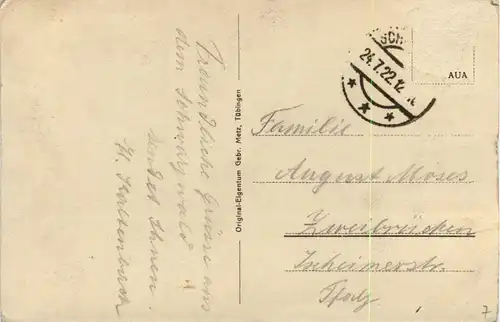 Freundliche Grüsse aus
dem Schwarzwald
sendet Ihnen
Original-Eigentum Gebr. Metz, Tübingen
SCH
24.7.22.12
AUA
Familie
August Moses
Zweibrücken
Pfalz
7